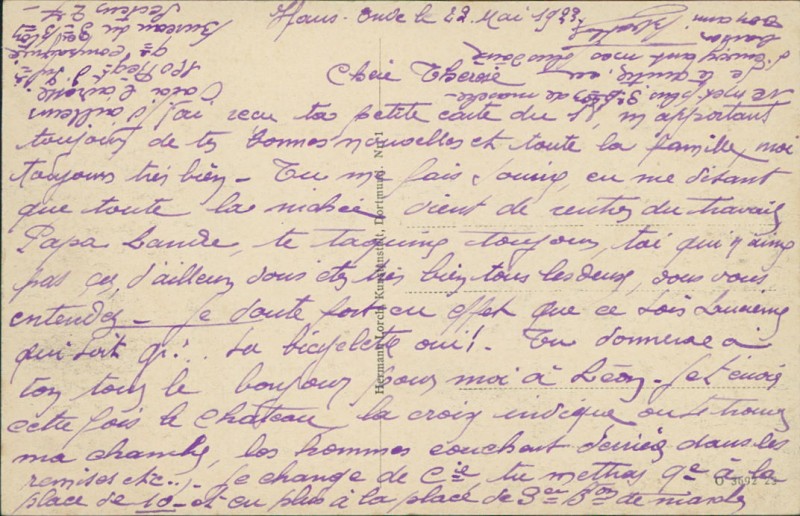 Haus-Ende le 22 Mai 1923.
Chère Therese
J'ai reçu ta petite carte du 18, m'apportant
toujours de tes bonnes nouvelles et toute la famille, moi
toujours très bien - Tu me fais sourire, en me disant
que toute la nichée vient de rentrer du travail,
Papa Lande, te taquine toujours, toi qui n'aime
pas ça, d'ailleurs vous etes très bien tous les deux, vous vous
entendez - Je doute fort en effet que ce sois
qui soit La bicyclette oui! - Tu donneras à
ton tour le bonjour pour moi à Léon - Je t'envoie
cette fois le chateau, la croix indique ou se trouve
ma chambre, les hommes couchent derrière dans les
remises etc... Je change de Cie, tu mettras 9e à la
place de 10 - et en plus à la place de 3e Bon de marche
d'ailleurs
160 Regt d'Inf.
9e compagnie
Bureau du 3e Bon
Secteur 24 -
Ne mets plus 3e Bon de marche -
Je te quitte en
Hermann Lorch, Kunstanstalt, Dortmund
O 3692 23